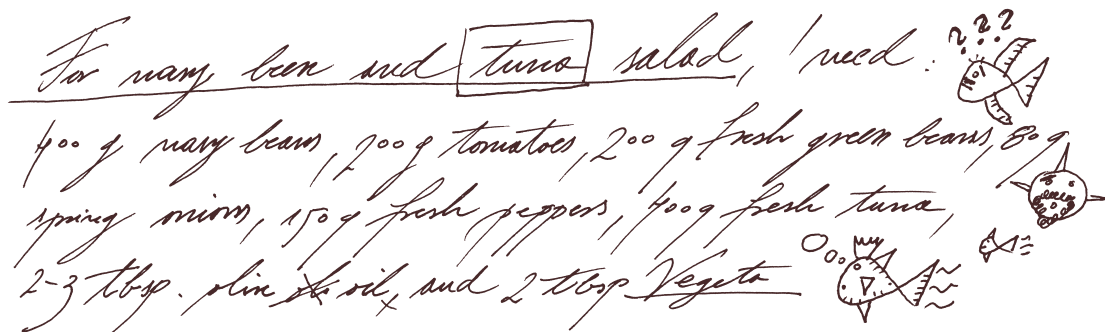 For navy been and tuna salad, I need:
400 g navy beans, 200 g tomatoes, 200 g fresh green beans, 80 g
spring onions, 150 g fresh peppers, 400 g fresh tuna,
2-3 tbsp. olive oil, and 2 tbsp Vegeta